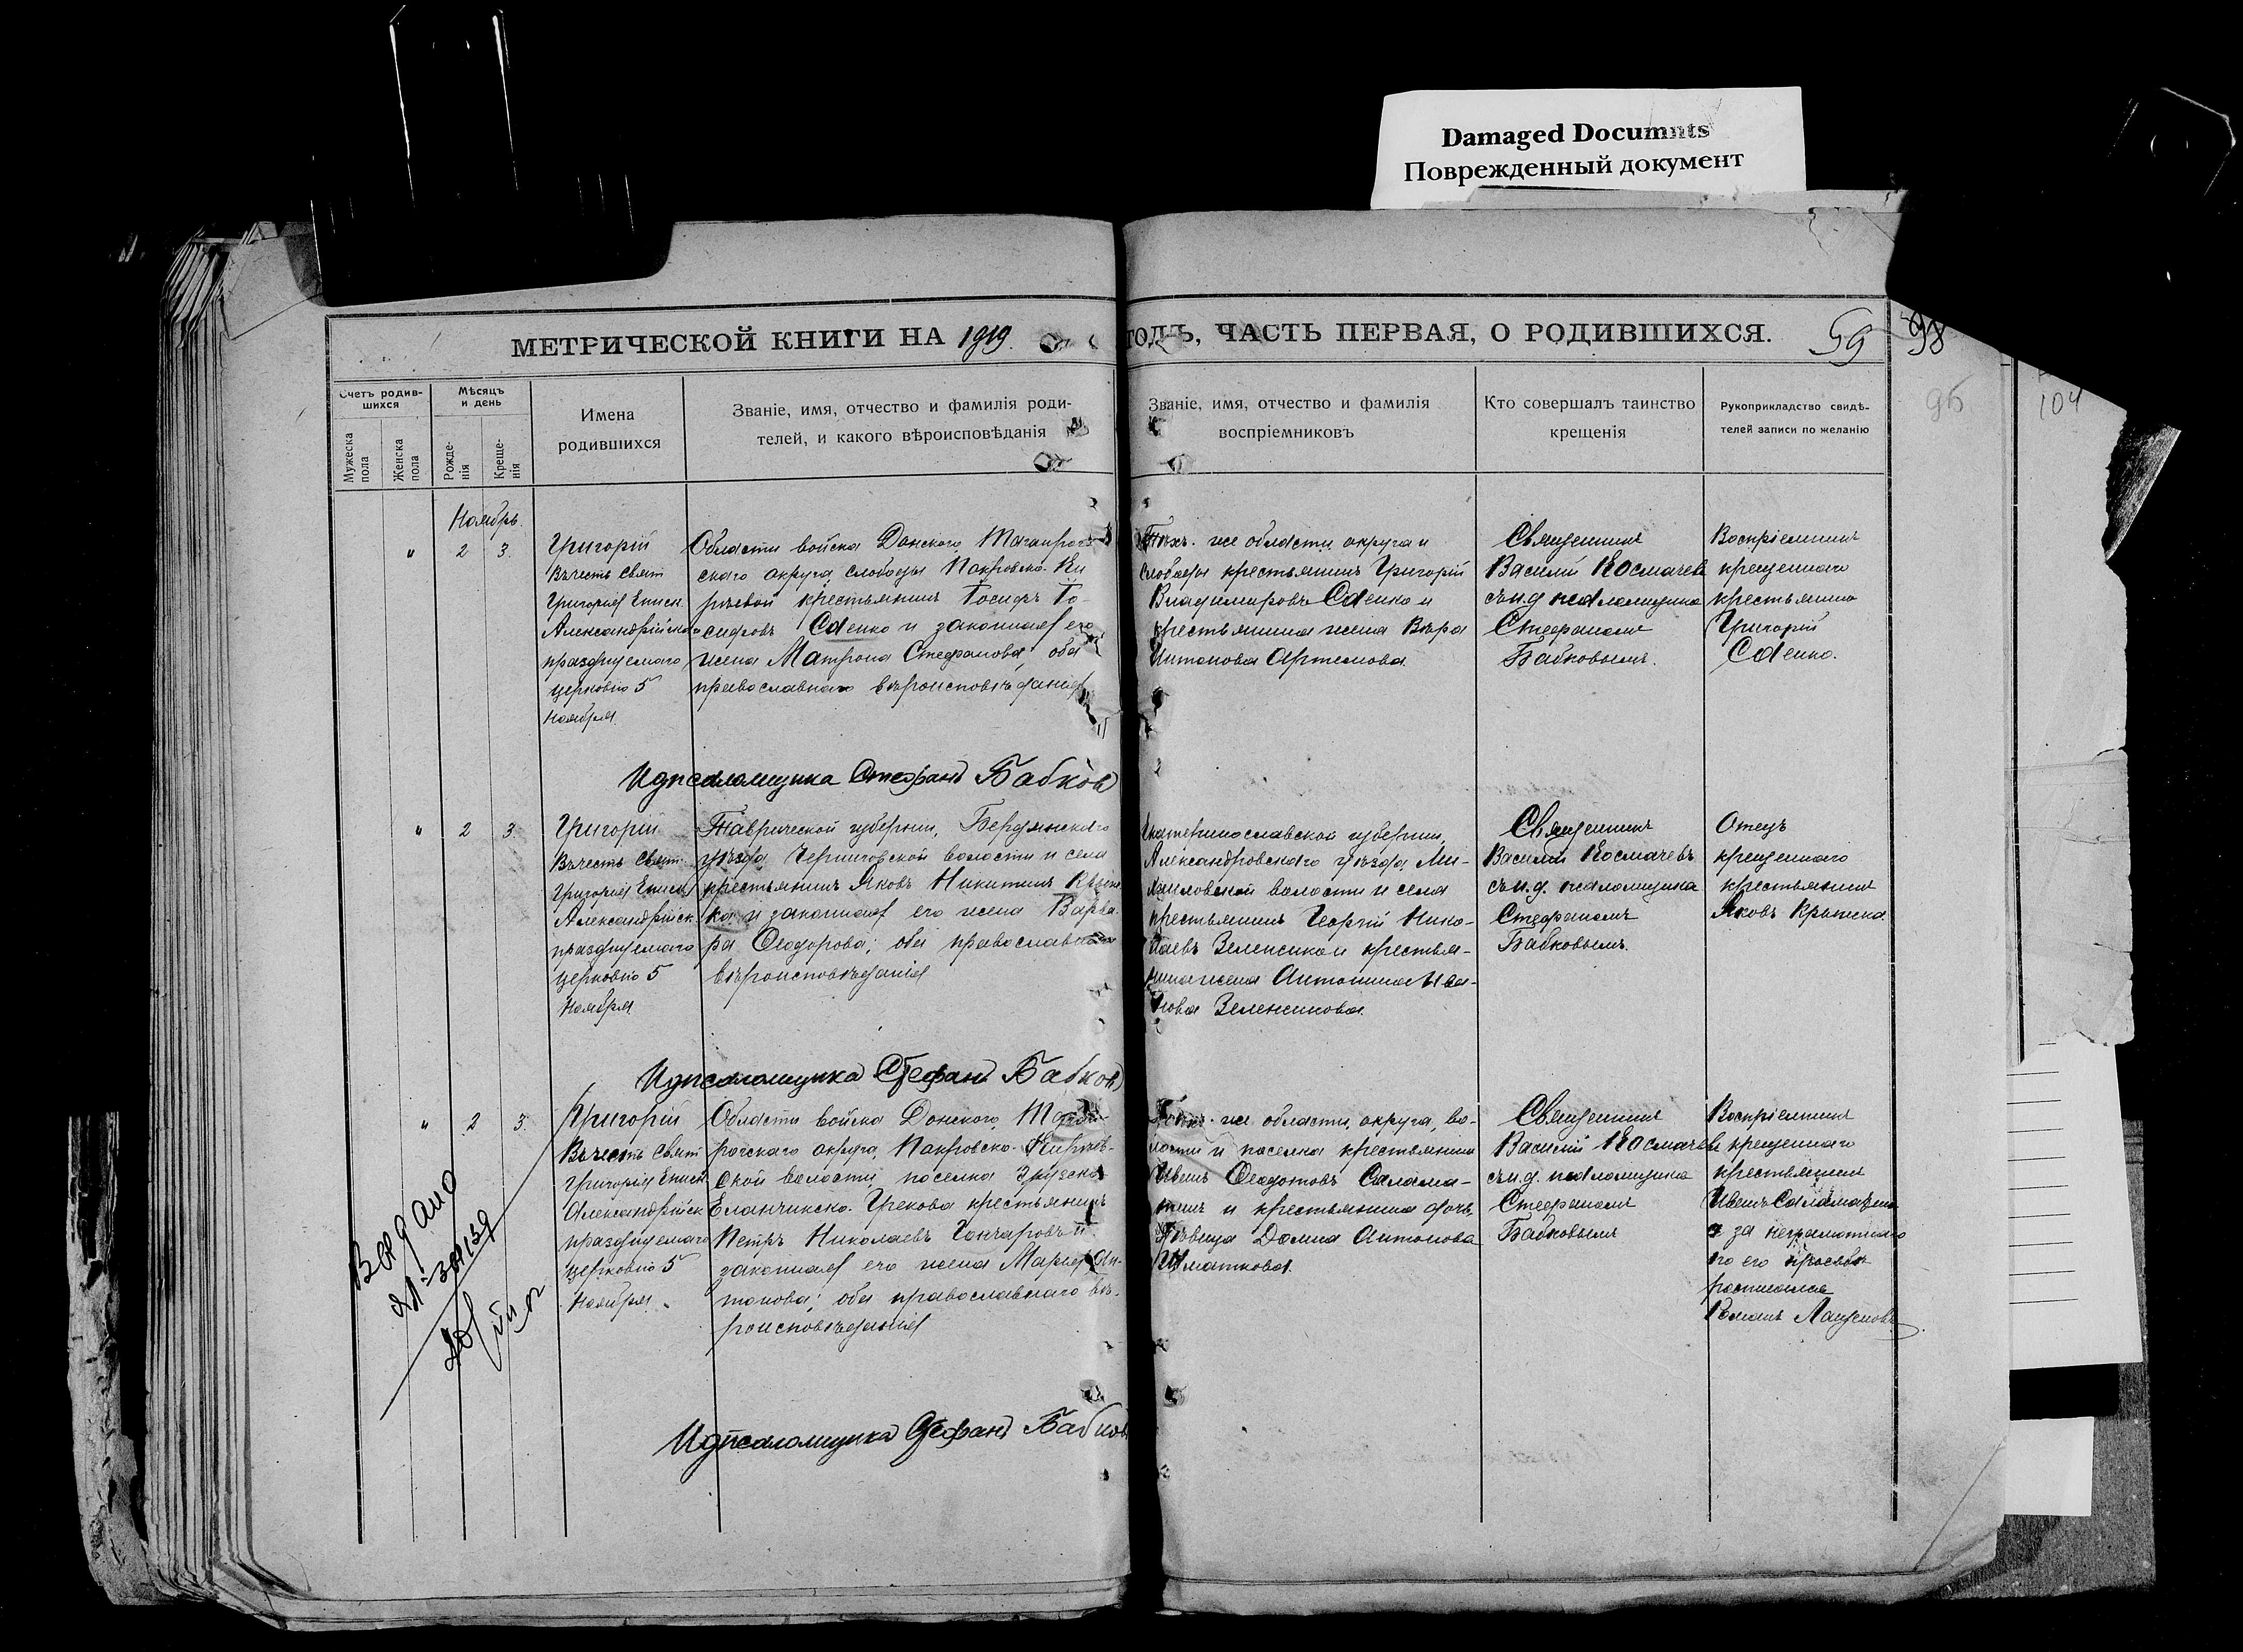 Damaged Documnts
Поврежденный документ
МЕТРИЧЕСКОЙ КНИГИ НА 1919 ГОДЪ, ЧАСТЬ ПЕРВАЯ, О РОДИВШИХСЯ.
59 98
96
104
Счетъ родив-
шихся
Мѣсяцъ
и день
Мужеска
пола
Женска
пола
Рожде-
нія
Креще-
нія
Имена
родившихся
Званіе, имя, отчество и фамилія роди-
телей, и какого вѣроисповѣданія
Званіе, имя, отчество и фамилія
воспріемниковъ
Кто совершалъ таинство
крещенія
Рукоприкладство свидѣ-
телей записи по желанію
Ноябрь.
" 2 3.
Григорій
Въ честь Свят
Григорія Еписк.
Александрійска
празднуемаго
церковію 5
ноября.
Области войска Донского, Таганрог-
скаго округа, слободы Покровско-Ки
рѣевой крестьянинъ Іосифъ Іо-
сифовъ Саенко и законная его
жена Матрона Стефанова, оба
православнаго вѣроисповѣданія
Тѣхъ-же области, округа и
слободы крестьянинъ Григорій
Владимировъ Саенко и
крестьянина жена Вѣра
Антонова Артемова.
Священникъ
Василій Космачевъ
съ и.д. псаломщика
Стефаномъ
Бабковымъ.
Воспріемникъ
крещеннаго
крестьянинъ
Григорій
Саенко.
И д псаломщика Стефанъ Бабковъ
" 2 3.
Григорій
Въ честь Свят.
Григорія Еписк
Александрійск.
празднуемаго
церковію 5
ноября.
Таврической губерніи, Бердянскаго
уѣзда, Черниговской волости и села
крестьянинъ Яковъ Никитинъ
ка и законная его жена Варва-
ра Ѳеодорова; оба православнаго
вѣроисповѣданія
Екатеринославской губерніи,
Александровскаго уѣзда, Ми-
хайловской волости и села
крестьянинъ Георгій Нико-
лаевъ и крестья-
нина жена Антонина Ива-
нова
Священникъ
Василій Космачевъ
съ и.д. псаломщика
Стефаномъ
Бабковымъ.
Отецъ
крещеннаго
крестьянинъ
Яковъ
И д псаломщика Стефанъ Бабковъ
" 2 3.
Григорій
Въ честь Свят
Григорія Еписк
Александрійск
празднуемаго
церковію 5
ноября.
Области войска Донского, Таган-
рогскаго округа, Покровско-Кирѣев-
ской волости, поселка
Еланчинско-Грекова крестьянинъ
Петръ Николаевъ Гончаровъ и
законная его жена Марія Ан-
тонова; оба православнаго вѣ-
роисповѣданія
Тѣхъ-же области, округа, во-
лости и поселка крестьянинъ
Иванъ Ѳеодотовъ Салама-
тинъ и крестьянина дочь,
дѣвица Домна Антонова
Шматкова.
Священникъ
Василій Космачевъ
съ и.д. псаломщика
Стефаномъ
Бабковымъ
Воспріемникъ
крещеннаго
крестьянинъ
Иванъ Саламатинъ
а за неграмотнаго
по его просьбѣ
росписался
Романъ
Выдано
И д псаломщика Стефанъ Бабковъ